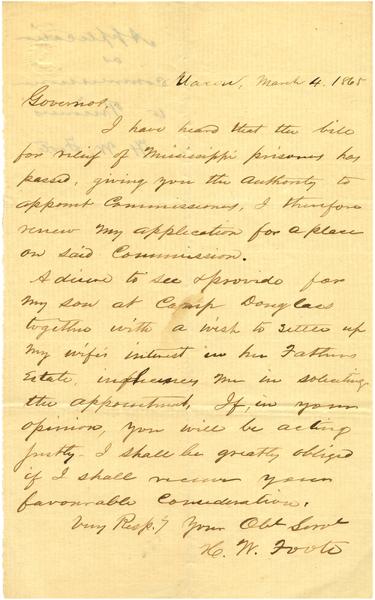 Macon, March 4. 1865
Governor,
I have heard that the bill
for relief of Mississippi prisoners has
passed, giving you the authority to
appoint Commissioners, I therefore
renew my application for a place
on said Commission.
A desire to see & provide for
my son at Camp Douglass
together with a wish to settle up
my wife's interest in her Fathers
Estate, influences me in soliciting
the appointment, If, in your
opinion, you will be acting
justly - I shall be greatly obliged
if I shall receive your
favourable consideration.
Very Resp.y Your Obt Servt
H. W. Foote